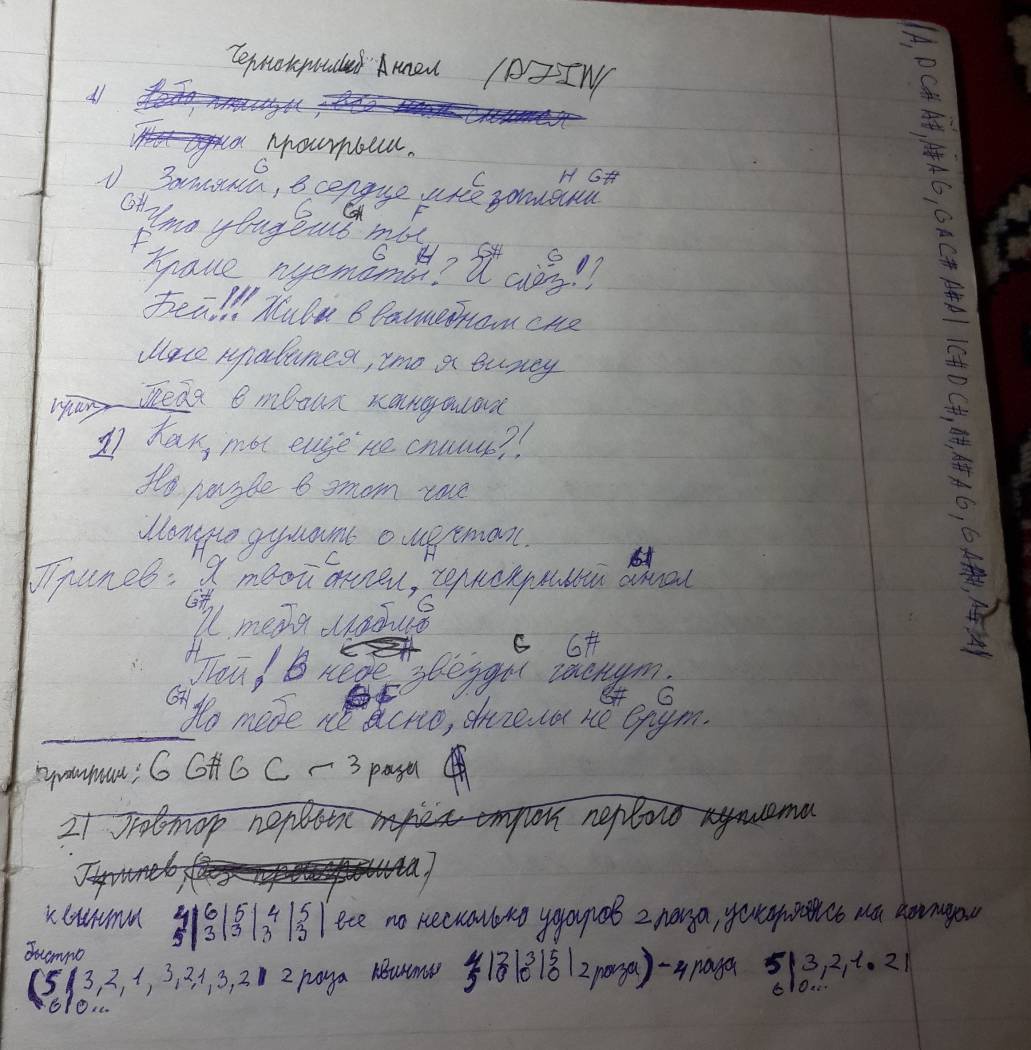 Чернокрылый Ангел /DJIN/
1) Небо, птицы, всё
Ты одна проигрыш.
1) Загляни, в сердце мне загляни
G C H G#
Что увидешь ты
G# G G# F
Кроме пустоты? И слёз!?
F G H G# G
Бей!!! Живи в волшебном сне
Мне нравится, что я вижу
Тебя в твоих кандалах
2) Как, ты ещё не спишь?!
Но разве в этот час
Можно думать о мечтах.
H C H
Припев: Я твой ангел, чернокрылый ангел
G# G
И тебя люблю
H H G G#
Пой! В небе звёзды гаснут.
G# G# G
Но тебе не ясно, Ангелы не врут.
проигрыш: G G# G C — 3 раза
2) Повтор первых трёх строк первого куплета
Припев,
квинты 4/5 | 6/3 | 5/3 | 4/3 | 5/3 | все по несколько ударов 2 раза, ускоряясь на каждом
быстро
(5 | 3, 2, 1, 3, 2, 1, 3, 2 | 2 раза квинты 4/5 | 2/0 | 3/0 | 5/0 | 2 раза) – 4 раза 5 | 3, 2, 1. 2 |
6 | 0... 6 | 0...